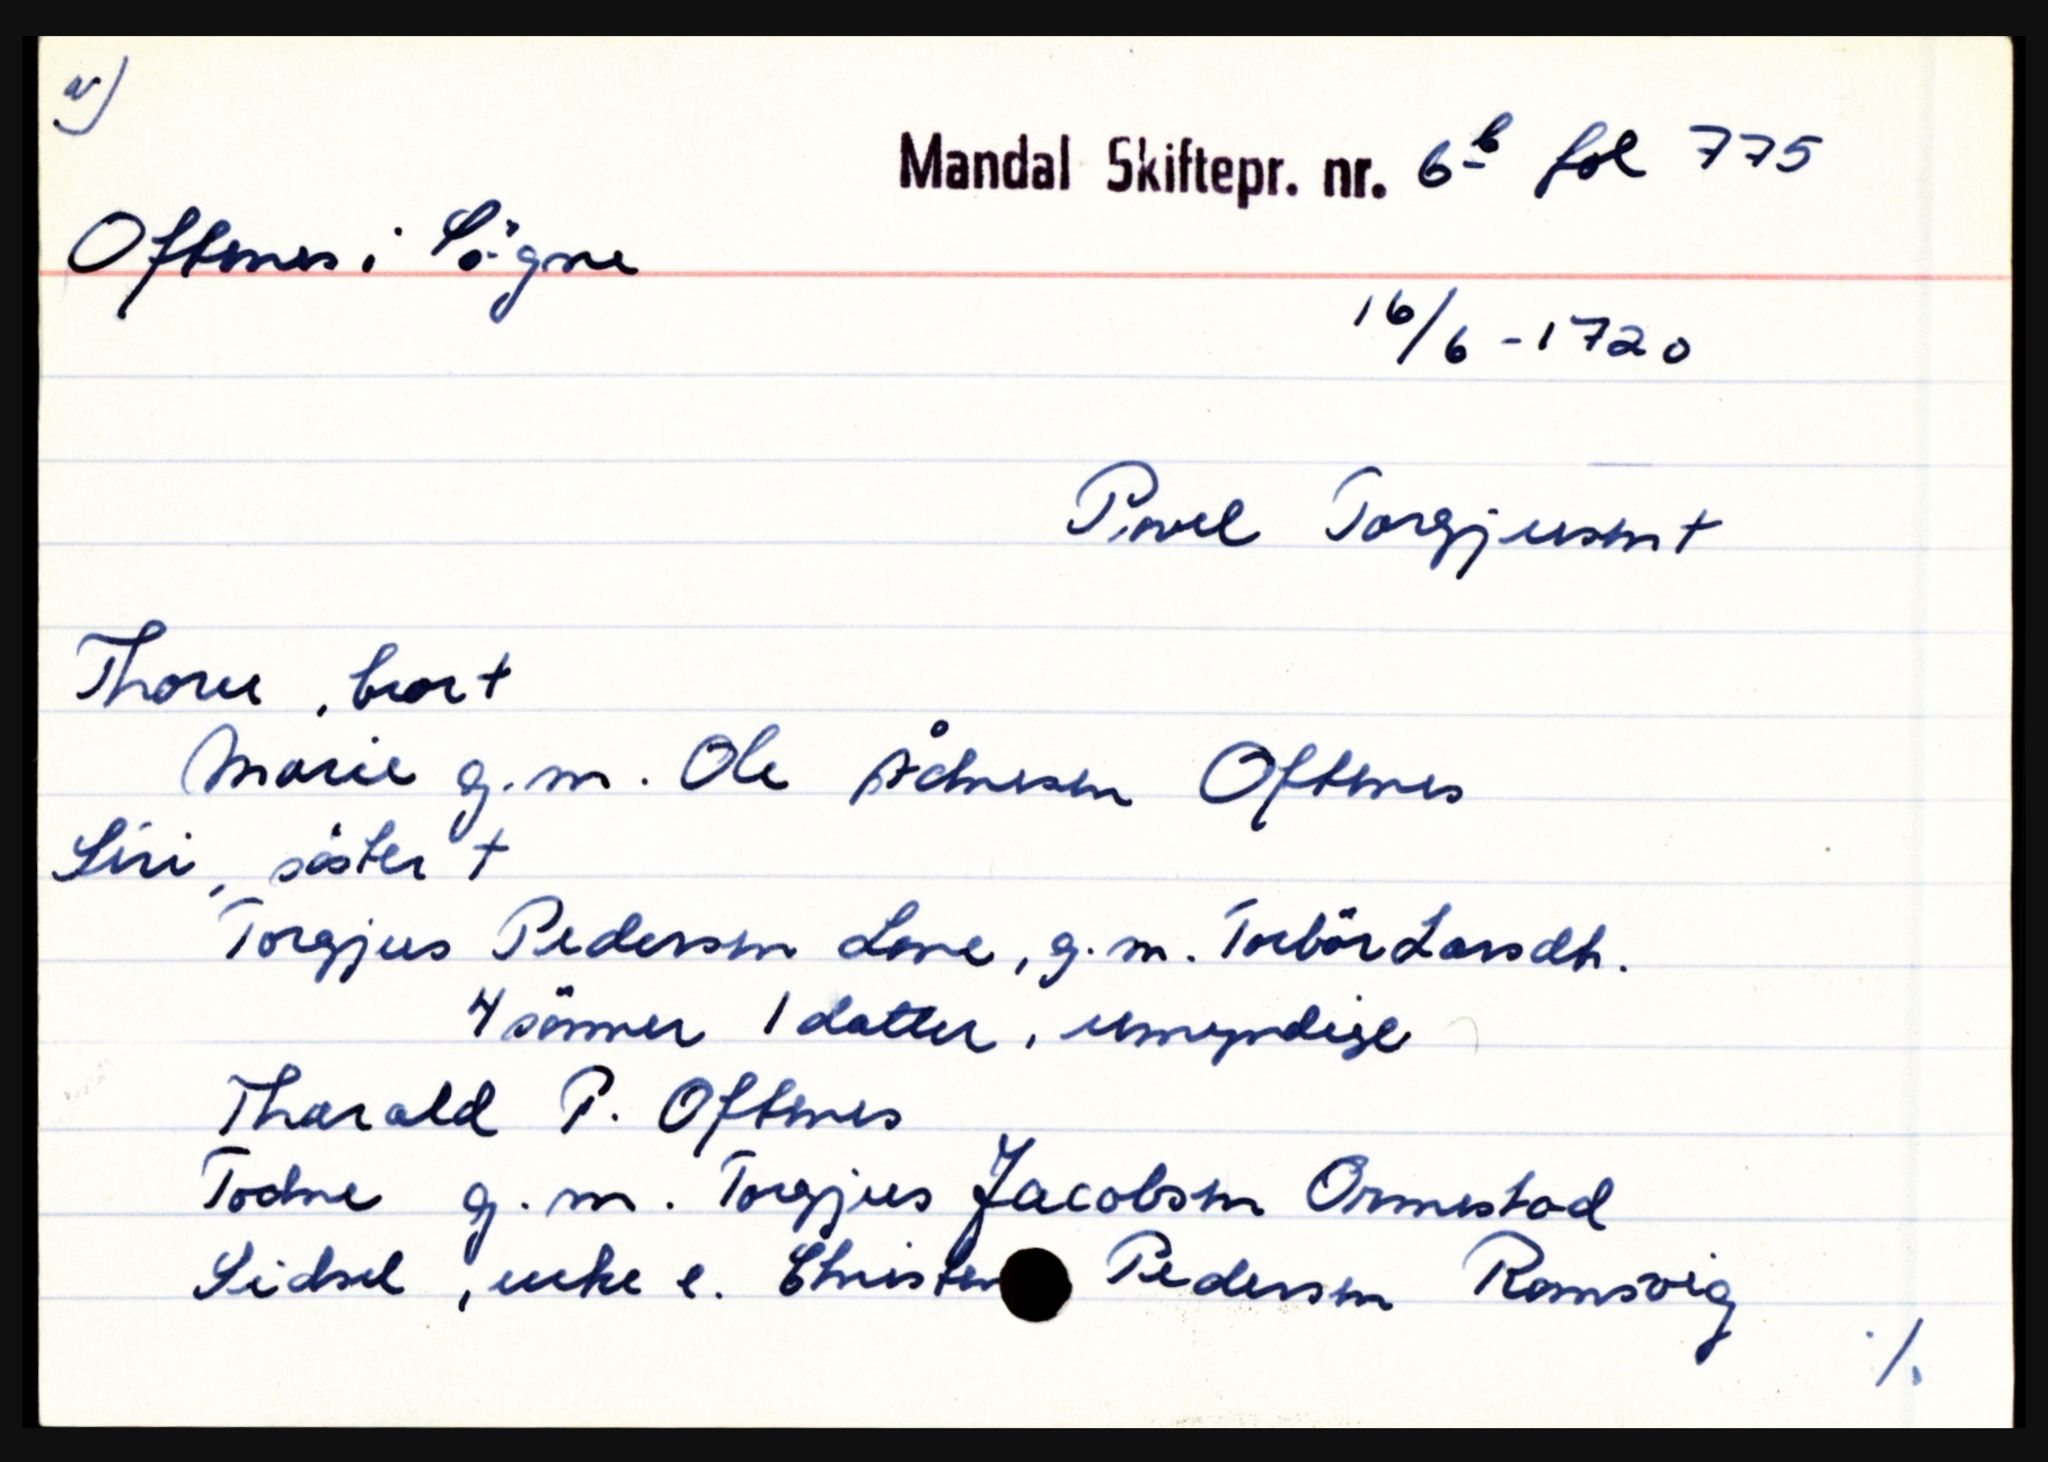 a)
Mandal Skiftepr. nr. 6b fol 775
Oftenes i Sögne
16/6 - 1720
Povel Torgjusen +
Thore, bror +
Marie g.m. Ole Ådnesen Oftenes
Siri, söster +
Torgjus Pedersen Lone, g.m. Torbör Larsdh.
4 sönner 1 datter, umyndige
Tharald P. Oftenes
Todne g.m. Torgjus Jacobsen Ormestad
Sidsel, enke e. Christen Pedersen Romsvig
./.